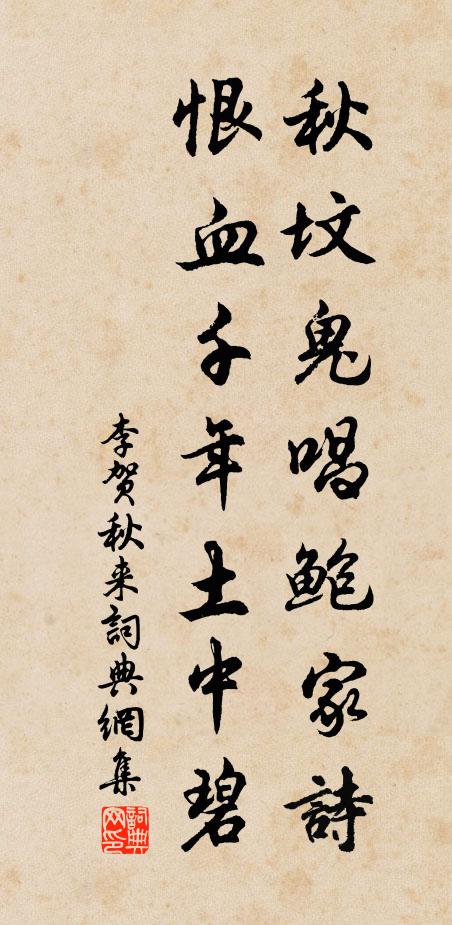 秋坟鬼唱鲍家詩
恨血千年土中碧
李贺秋来詞典網集
詞典网印